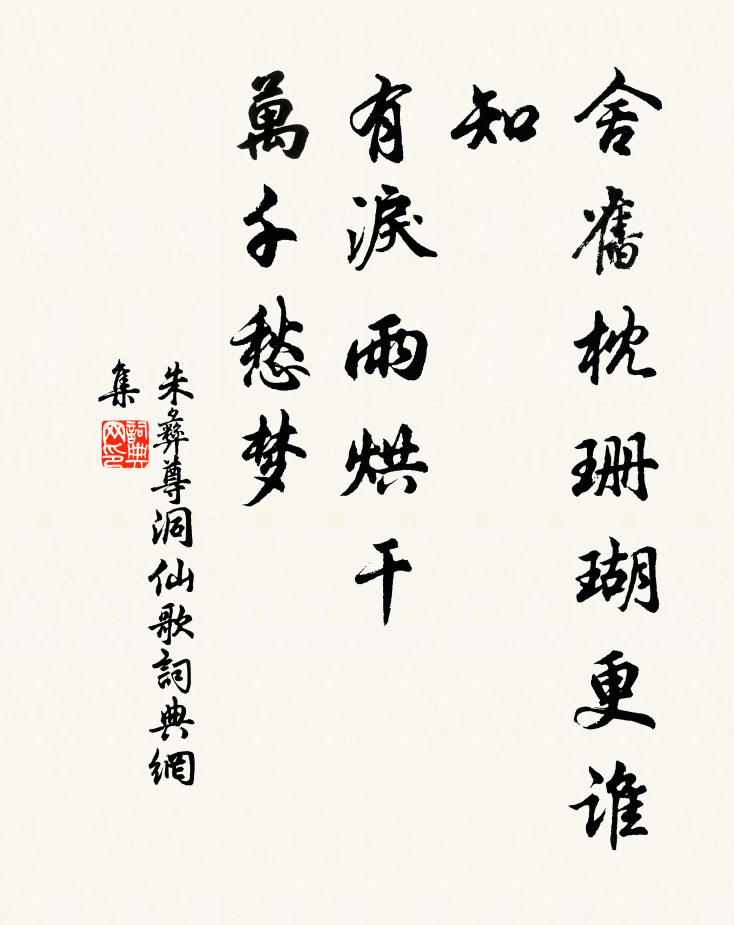 舍舊枕珊瑚更誰
知
有淚雨烘干
萬千愁梦
朱彝尊洞仙歌詞典網
集
詞典
网印